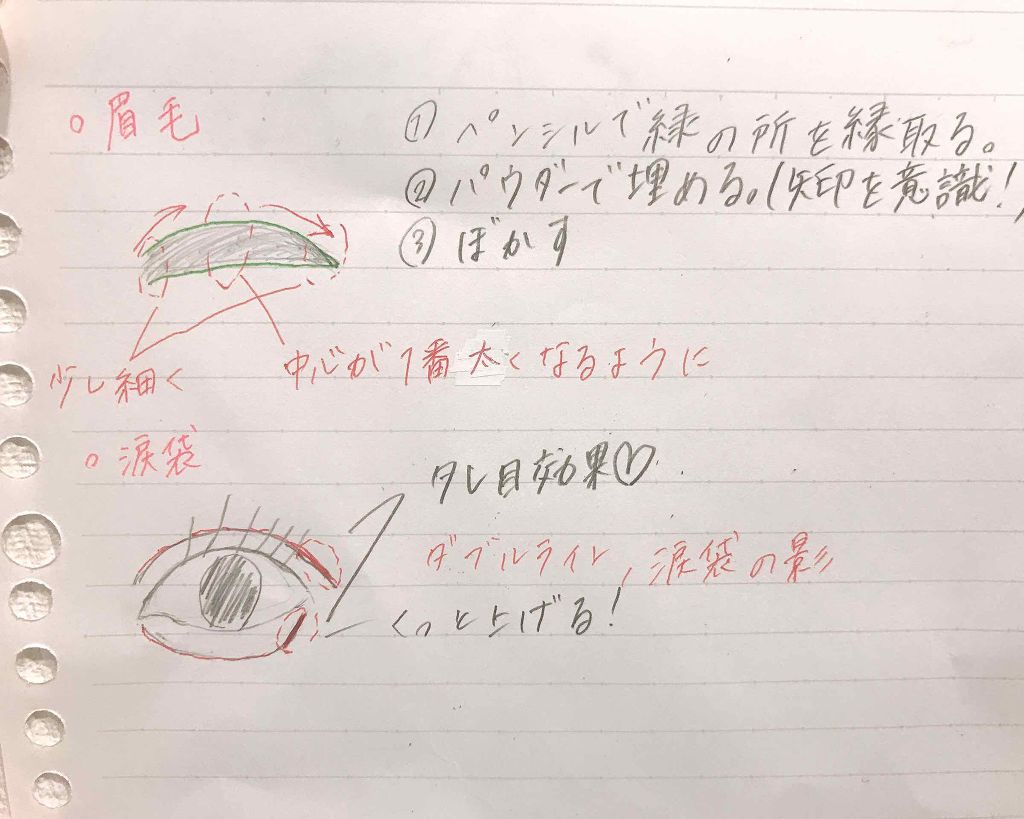 ○眉毛
① ペンシルで緑の所を縁取る。
② パウダーで埋める。(矢印を意識!)
③ ぼかす
少し細く
中心が1番太くなるように
○涙袋
タレ目効果♡
ダブルライト,涙袋の影
くっと上げる!